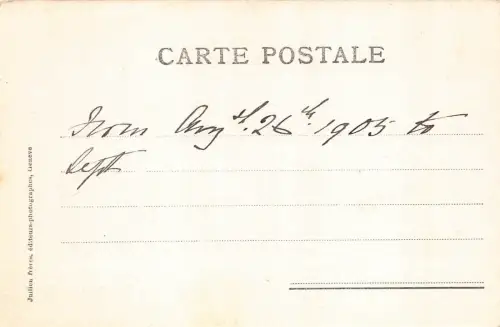 CARTE POSTALE
From Augst. 26th. 1905 to
Sept
Jullien frères, éditeurs-photographes, Genève